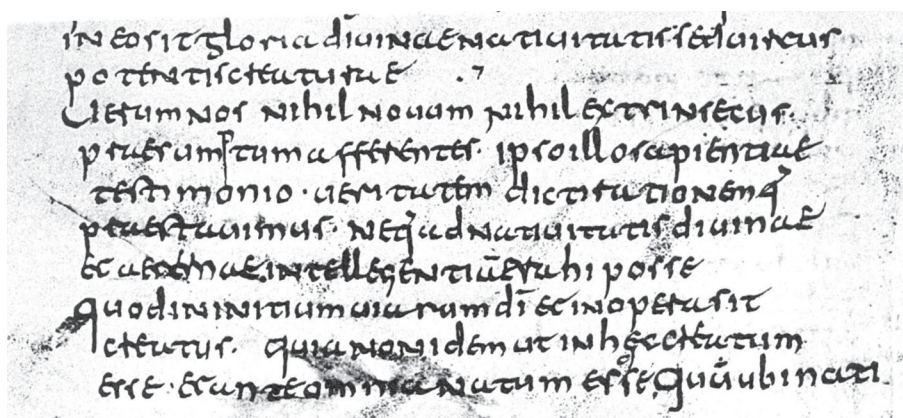 in eo sit gloria diuinae natiuitatis sed uirtus
potentis creaturae
Uerum nos nihil nouum nihil extrinsecus·
praesumptum afferentes· ipso illo sapientiae
testimonio · ueritatem dicti rationemq̄
praestauimus· neq̄ ad natiuitatis diuinae
et aeternae intellegentiā trahi posse
quod in initium uiarum dī et in opera sit
creatus· quia non idem ut in hęc creatum
esse · et ante omnia natum esse, ubi nati